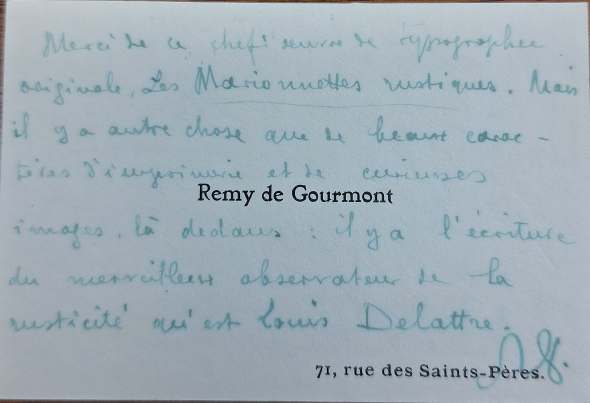 Merci de ce chef d'œuvre de typographie
originale, Les Marionnettes rustiques. Mais
il y a autre chose que de beaux carac-
tères d'imprimerie et de curieuses
Remy de Gourmont
images, là dedans : il y a l'écriture
du merveilleux observateur de la
rusticité qu'est Louis Delattre.
71, rue des Saints-Pères.